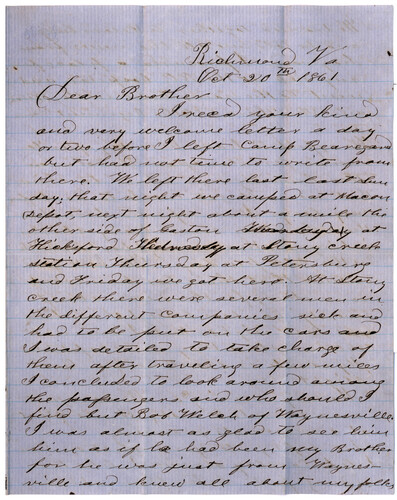 Richmond Va
Oct 20th 1861
Dear Brother
I recd your kind
and very welcome letter a day
or two before I left Camp Beauregard
but had not time to write from
there. We left there last last Sun
day; that night we camped at Macon
depot, next night about a mile the
other side of Gaston at
Hicksford at Stony creek
station Thursday at Petersburg
and Friday we got here. At Stony
creek there were several men in
the different companies sick and
had to be put on the cars and
I was detailed to take charge of
them after traveling a few miles
I concluded to look around among
the passengers and who should I
find but Bob Welch of Waynesville
I was almost as glad to see him
him as if he had been my Brother
for he was just from Waynes-
ville and knew all about my folks